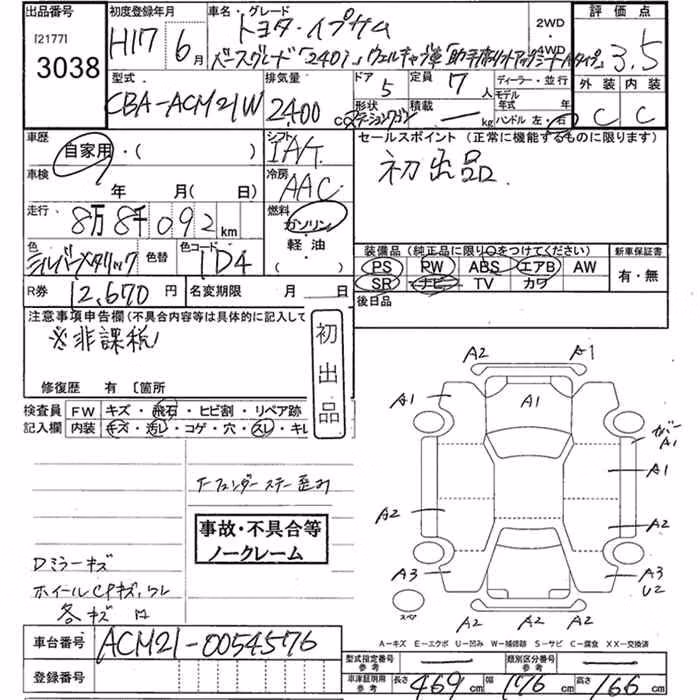 出品番号
[21771]
3038
初度登録年月
H17 6月
車名・グレード
トヨタ・イプサム
ベースグレード「240i」ウェルキャブ車「助手席リフトアップシートAタイプ」
2WD
4WD
評価点
3.5
外装 内装
C C
型式
CBA-ACM21W
排気量
2,400 cc
ドア
5
定員
7人
形状
ステーションワゴン
積載
— kg
ディーラー・並行
モデル
年式 年
ハンドル 左・右
車歴
自家用・( )
シフト
IAT
セールスポイント (正常に機能するものに限ります)
初出品
車検
年 月( 日)
冷房
AAC
走行
8万8千092km
燃料
ガソリン
軽・油
( )
色
シルバーメタリック
色替
色コード
1D4
装備品 (純正品に限り○をつけてください)
新車保証書
PS PW ABS エアB AW
SR ナビ TV カワ
有・無
R券
12,670円
名変期限 月 日
後日品
注意事項申告欄 (不具合内容等は具体的に記入して
※非課税
初出品
修復歴 有 〔箇所
検査員 FW キズ・飛石・ヒビ割・リペア跡
記入欄 内装 キズ・汚レ・コゲ・穴・スレ・キレ
Fフェンダーステー歪み
事故・不具合等
ノークレーム
Dミラーキズ
ホイールCPキズ,ワレ
各キズ
A2 A1
A1 A1
A1
A1
A2 A2
A3 A3
U2
スペア
A2 A2 A2
A－キズ E－エクボ U－凹み W－補修跡 S－サビ C－腐食 XX－交換済
車台番号
ACM21-0054576
登録番号
型式指定番号
参考
—
類別区分番号
参考
—
車庫証明用
参考
長さ 469cm 幅 176cm 高さ 166cm